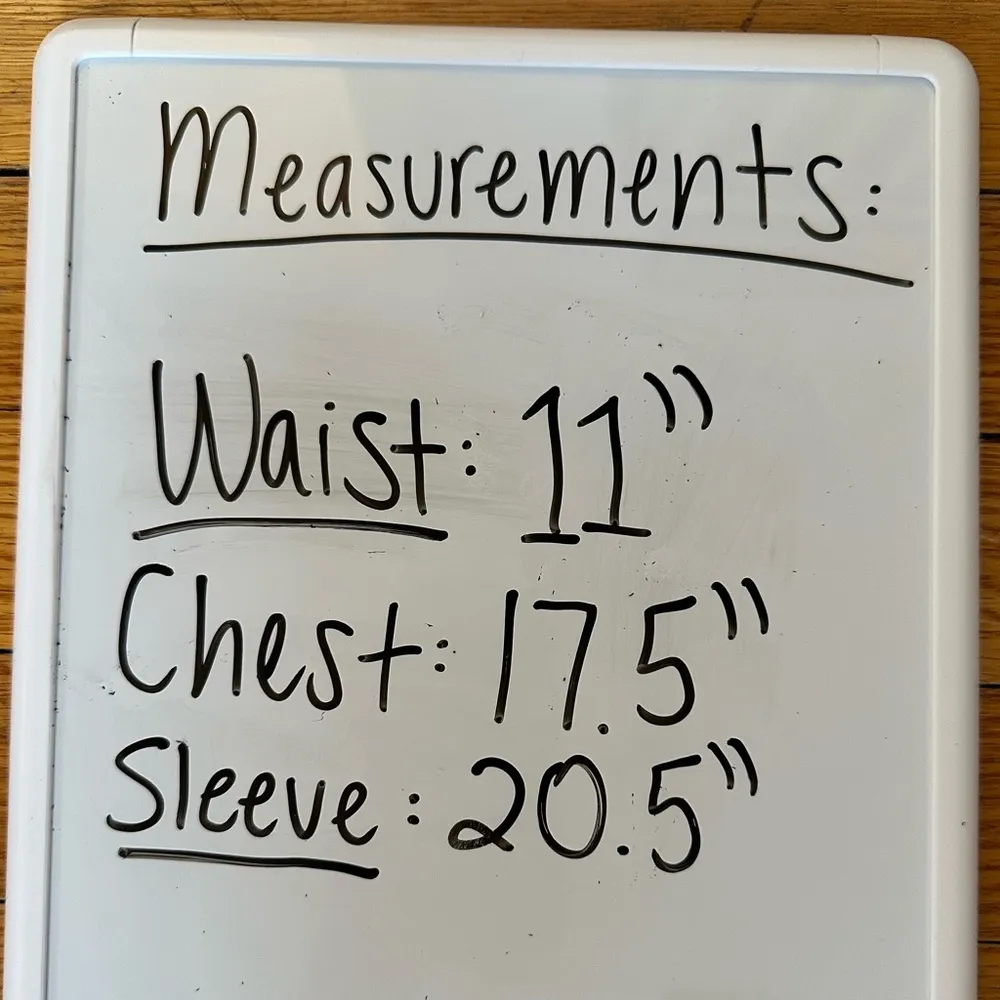 Measurements:
Waist: 11"
Chest: 17.5"
Sleeve: 20.5"